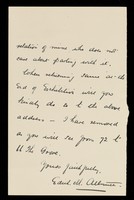 relation of mine who does not
care about parting with it.
When returning same at the
End of Exhibition will you
kindly do so to the above
address – I have removed
as you will see from 72 to
11 The Grove.
Yours faithfully,
Edith M.